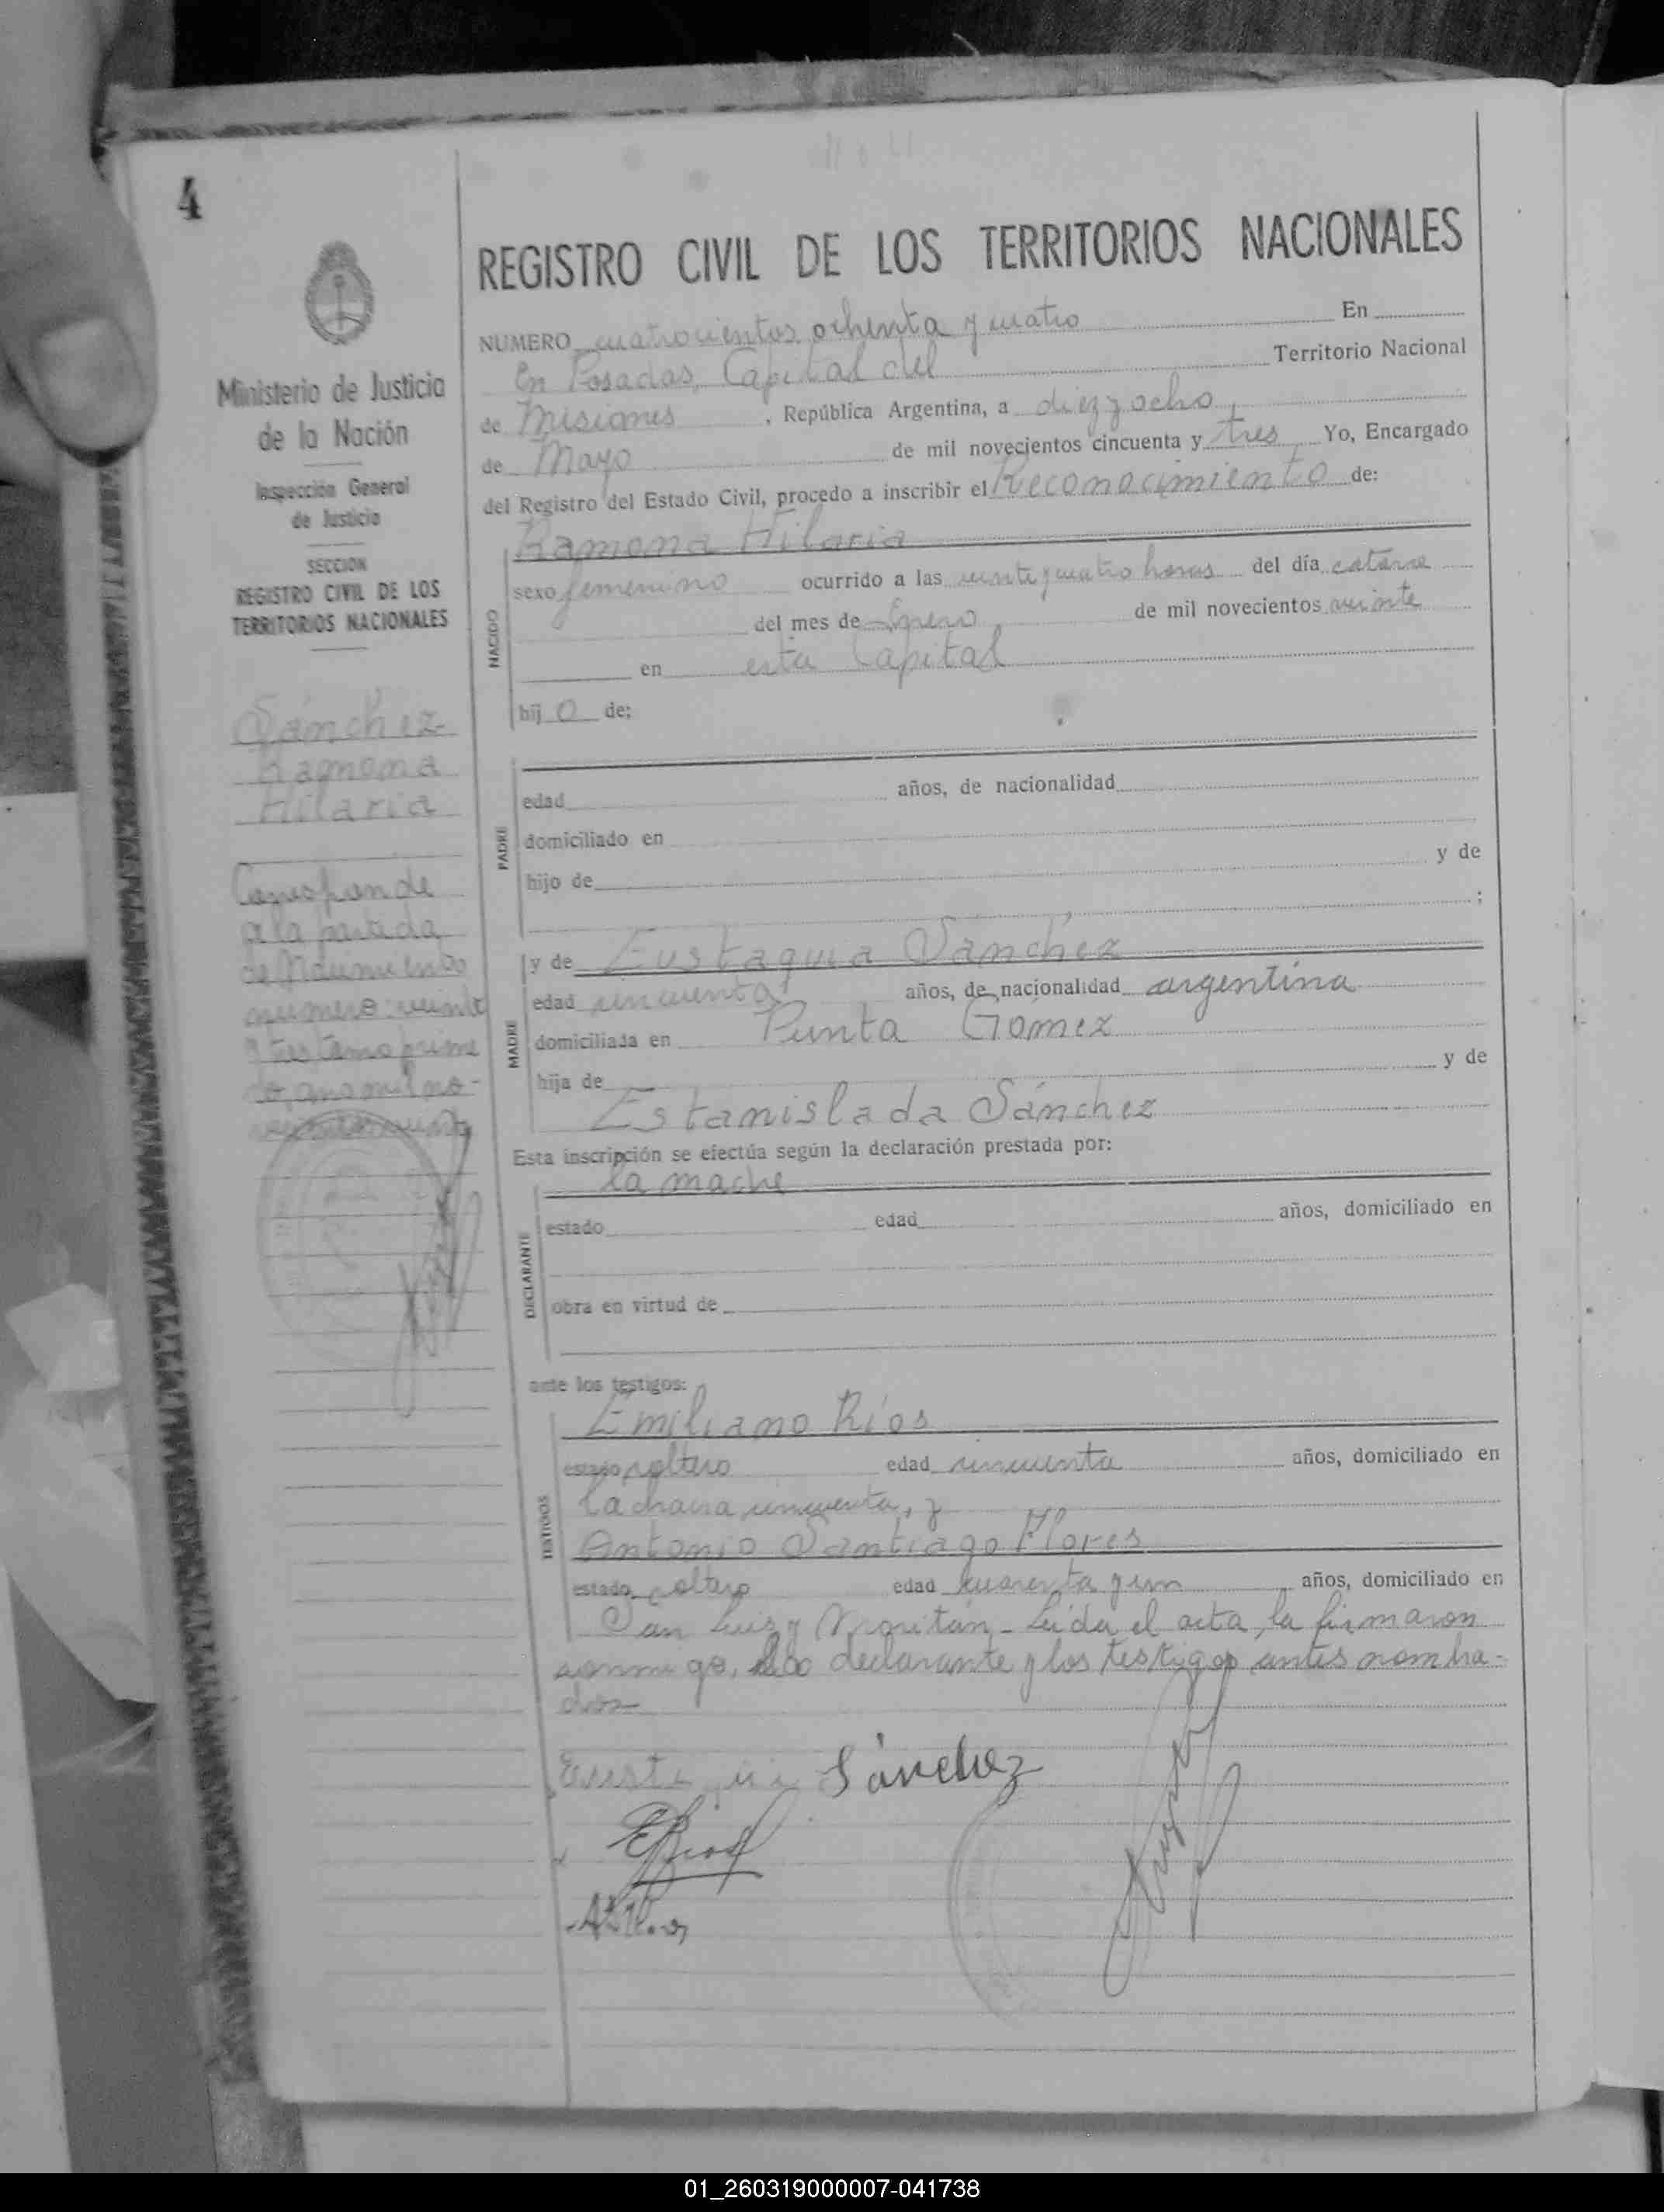 4
Ministerio de Justicia
de la Nación
Inspección General
de Justicia
SECCION
REGISTRO CIVIL DE LOS
TERRITORIOS NACIONALES
Sánchez
Ramona
Hilaria
Corresponde
a la partida
de Nacimiento
numero: veinte
y tres tomo prime
ro, ano mil no-
REGISTRO CIVIL DE LOS TERRITORIOS NACIONALES
NUMERO cuatrocientos ochenta y cuatro En
En Posadas, Capital del Territorio Nacional
de Misiones , República Argentina, a diez y ocho
de Mayo de mil novecientos cincuenta y tres Yo, Encargado
del Registro del Estado Civil, procedo a inscribir el Reconocimiento de:
NACIDO
Ramona Hilaria
sexo femenino ocurrido a las veinte y cuatro horas del día catorce
del mes de Enero de mil novecientos veinte
en esta Capital
hij o de:
PADRE
edad años, de nacionalidad
domiciliado en
hijo de y de
;
MADRE
y de Eustaquia Sánchez
edad cincuenta años, de nacionalidad argentina
domiciliada en Punta Gomez
hija de y de
Estanislada Sánchez
Esta inscripción se efectúa según la declaración prestada por:
DECLARANTE
la madre
estado edad años, domiciliado en
obra en virtud de
ante los testigos:
TESTIGOS
Emiliano Ríos
estado soltero edad cincuenta años, domiciliado en
la chacra cincuenta, y
Antonio Santiago Flores
estado soltero edad cuarenta y un años, domiciliado en
San Luis y - Leida el acta, la firmaron
conmigo, declarante y los testigos antes nombra-
dos-
Sánchez
ERios
01_260319000007-041738